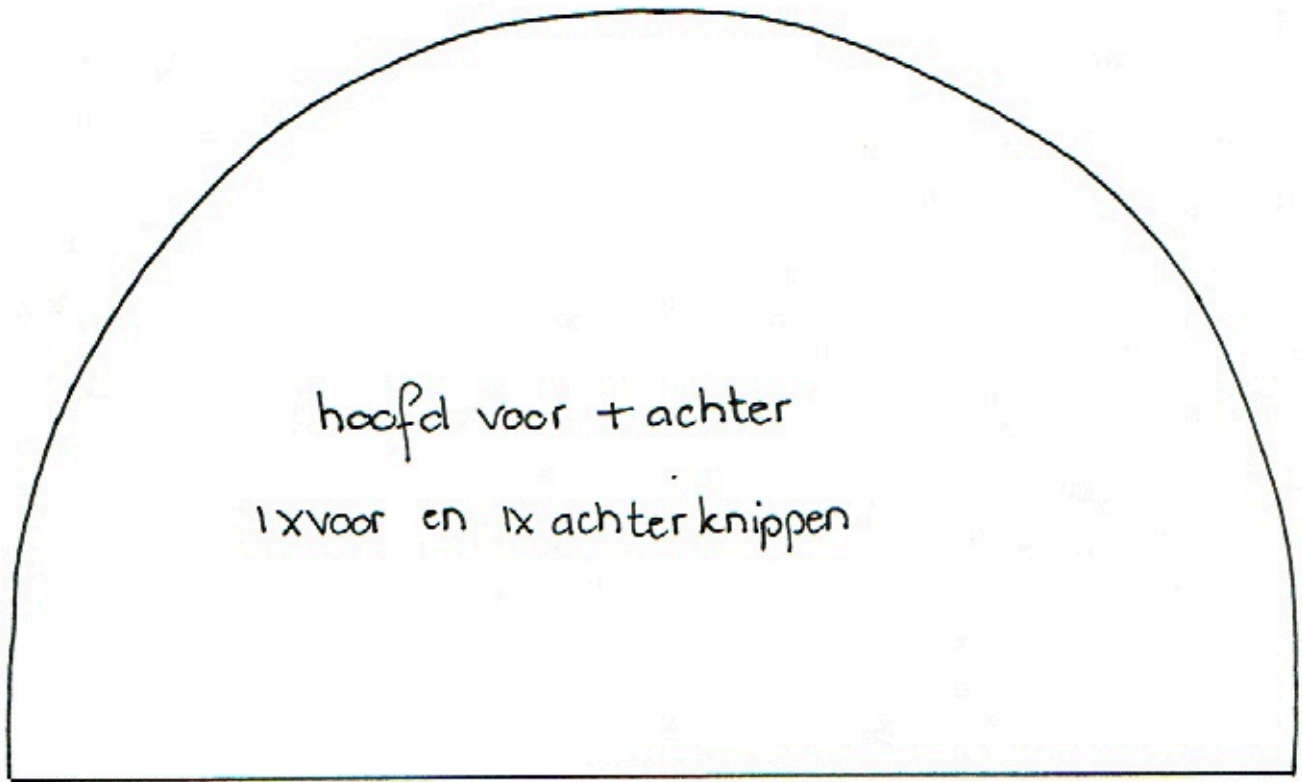 hoofd voor + achter
1x voor en 1x achter knippen